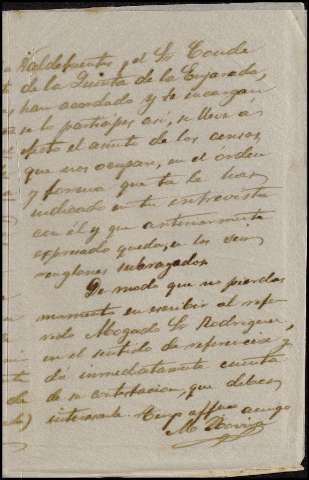 Valdefuentes y el Sr Conde
de la Quinta de la Enjarada,
han acordado y te encargan
se lo participes así, se lleve á
efecto el asunto de los censos,
que nos ocupan, en el órden
y forma que tu le has
indicado en tu entrevista
con él y que anteriormente
expresado queda, en los seis
renglones subrayados.
De modo que no pierdas
momento en escribir al refe-
rido Abogado Sr Rodriguez,
en el sentido de referencia y
dá inmediatamente cuenta
de su contestacion, que debes
interesarle. Tuyo affmo amigo
M.